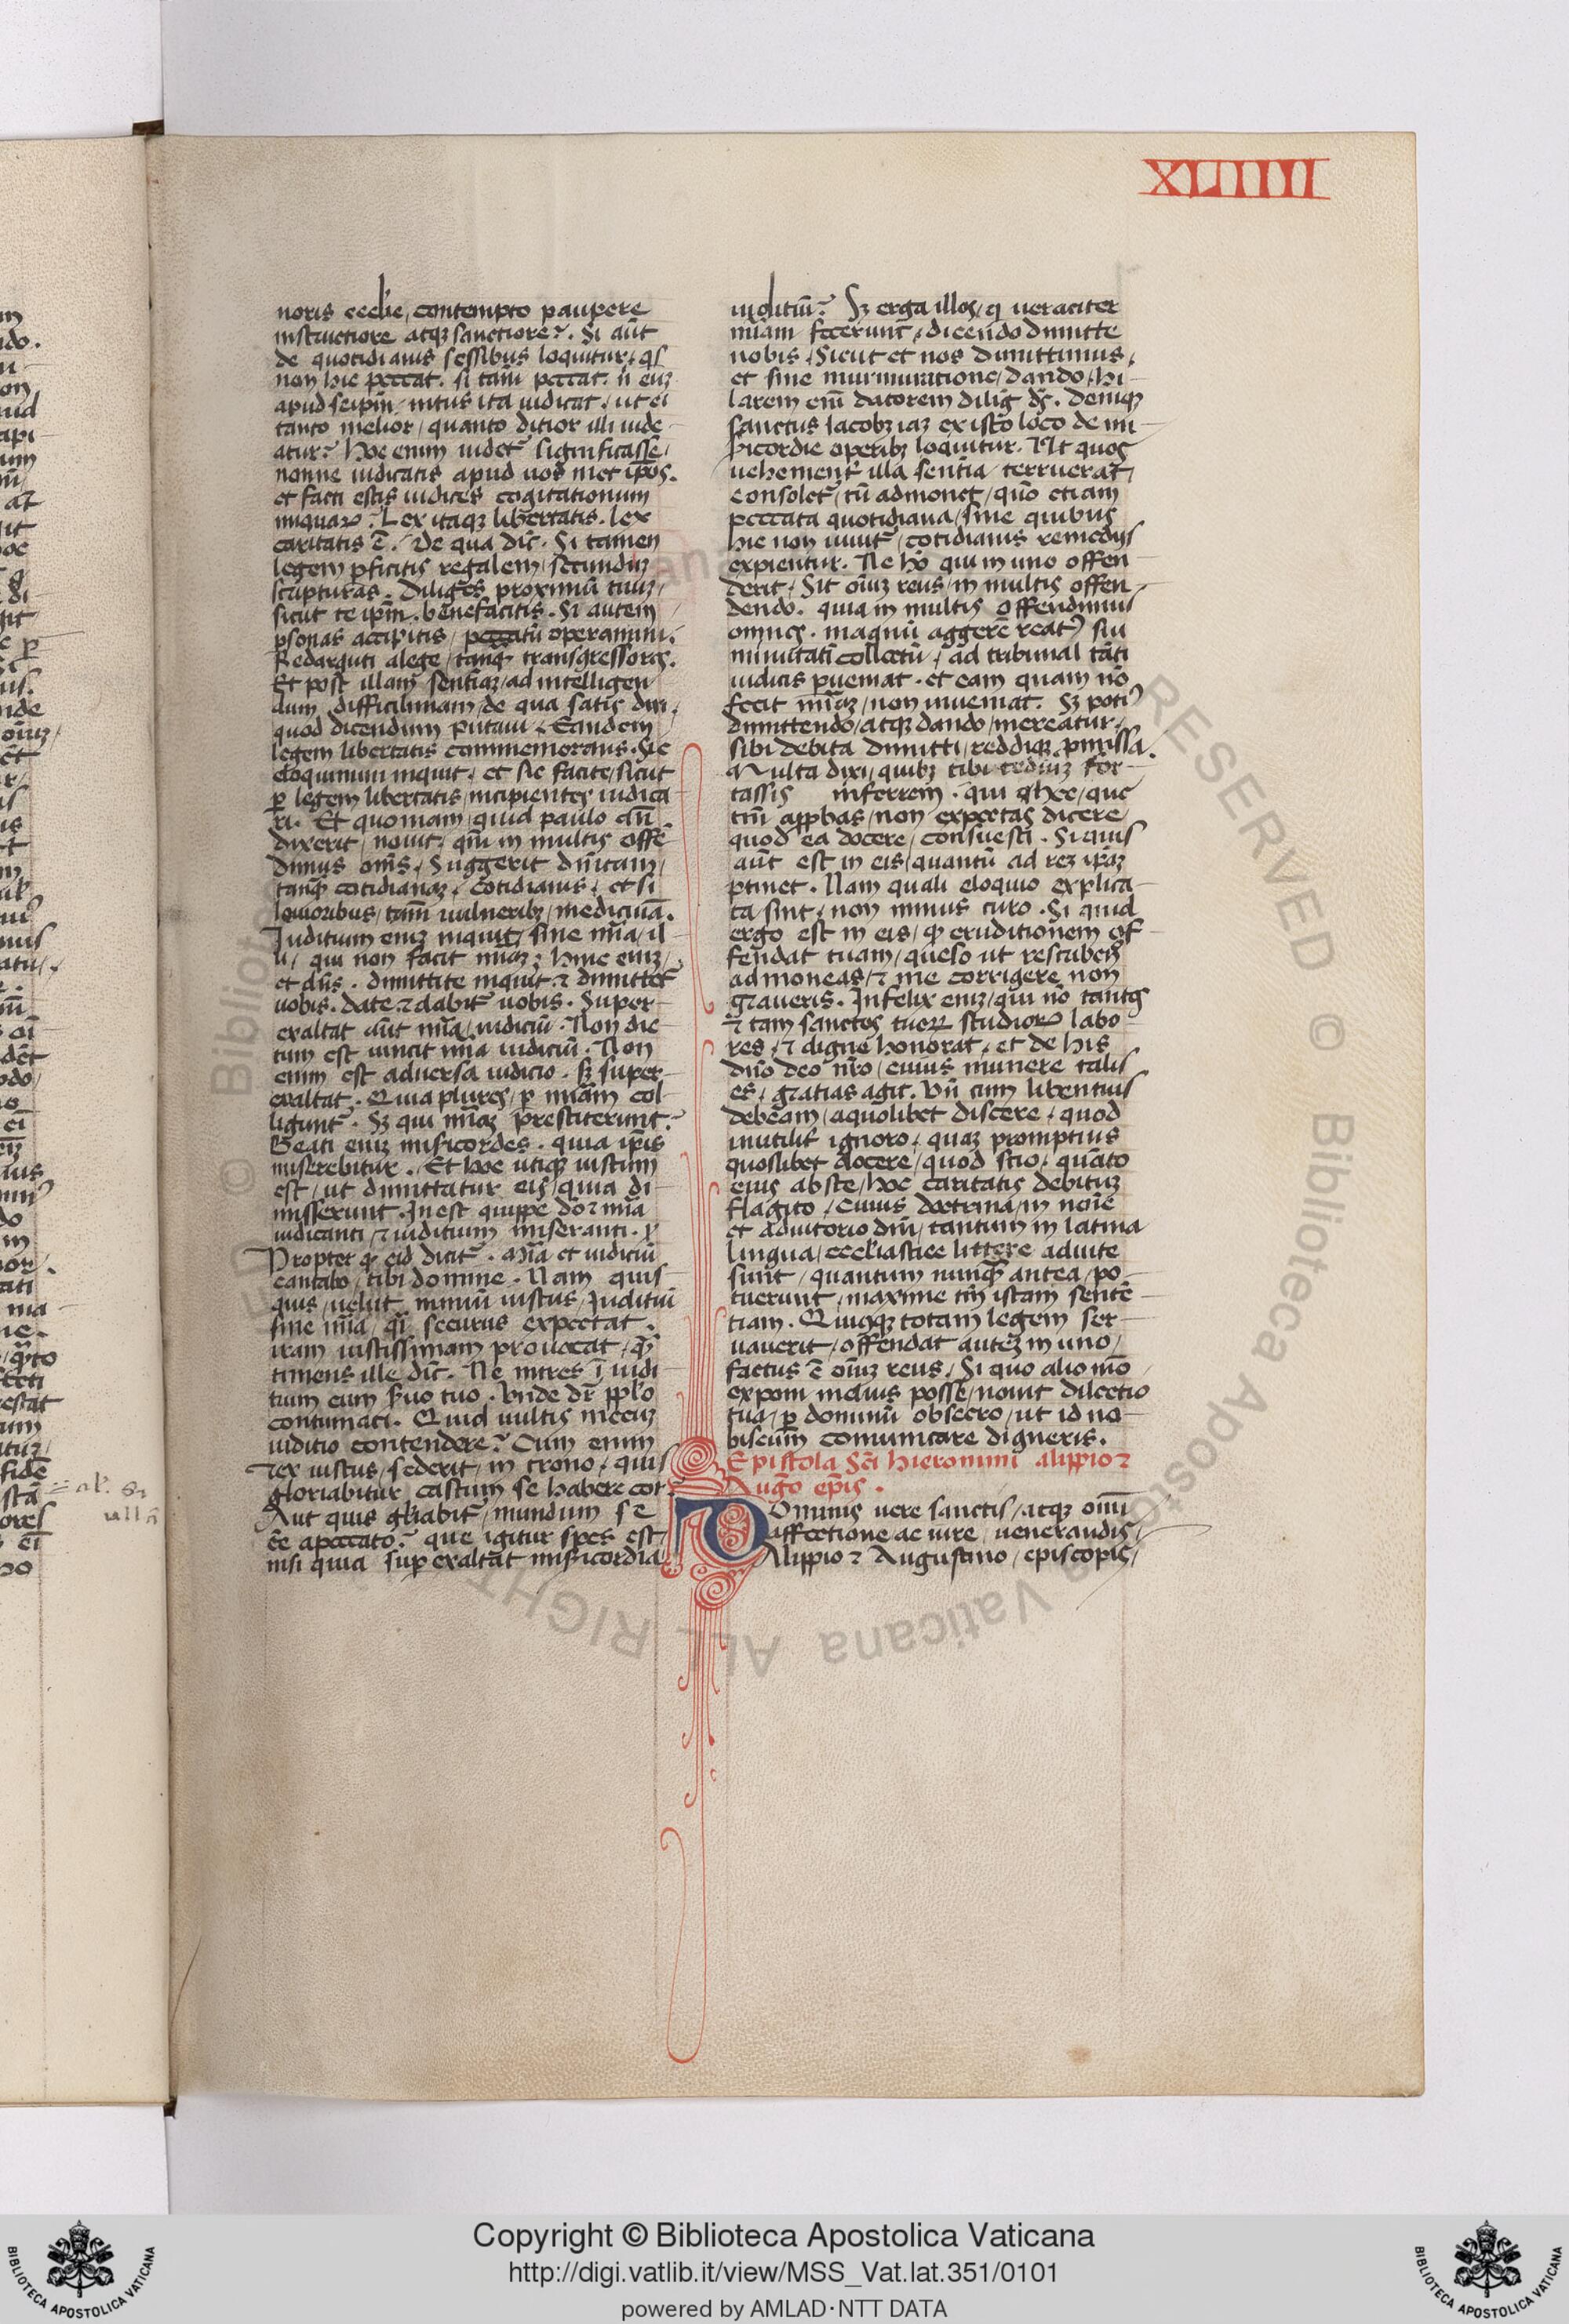 XLIIIII
noris eccl̄ie, contempto paupere
instructiore atqꝫ sanctiore? Si aūt
de quotidianis sessibus loquitur, qs
non hic peccat. si tam̄ peccat. ii eūꝫ
apud seip̄m, intus ita iudicat, ut ei
tanto melior, quanto ditior illi uide
atur? Hoc enim uidet᷑ significasse,
nonne iudicatis apud uos met ip̄os.
et facti estis iudices cogitationum
iniquaꝝ? Lex itaqꝫ libertatis. lex
caritatis ē. De qua dic̄. Si tamen
legem ꝑficitis regalem, secunduꝫ
scripturas. Diliges proximū tuuꝫ,
sicut te ip̄m. benefacitis. Si autem
ꝑsonas accipitis, peccatū operamini.
Redarguti a lege, tanqꝫ transgressores.
Et post illam sentēiaꝫ, ad intelligen
dum difficilimam, de qua satis dixi,
quod dicendum putaui. Eandem
legem libertatis commemorans. Sic
eloquimini inquit, et sic facite, sicut
ꝑ legem libertatis, incipientes iudica
ri. Et quoniam, quid paulo an̄
dixerit, nouit, qm̄ in multis offē
dimus om̄s, Suggerit dn̄icam,
tanqꝫ cotidianaꝫ, cotidianis, et si
leuioribus, tam̄ uulneribꝫ, medicinā.
Juditium eniꝫ inquit, sine mīa, il
li, qui non facit mīaꝫ; hinc eniꝫ,
et dn̄s. dimittite inquit ⁊ dimittet᷑
uobis. date ⁊ dabit᷑ uobis. Super
exaltat aūt mīa, iudiciū. Non dic
tum est uincit mīa iudiciū. Non
enim est aduersa iudicio. sꝫ super
exaltat. Quia plures, ꝑ mīam col
ligunt᷑. Sꝫ qui mīaꝫ prestiterunt.
Beati eniꝫ misicordes. quia ip̄is
miserebitur. Et hoc utiqꝫ iustum
est, ut dimittatur eis, quia di
misserunt. Inest quippe dō ⁊ mīa
iudicanti, ⁊ iuditium miseranti.
Propter qd̄ eid dicit᷑. Mīa et iudiciū
cantabo, tibi domine. Nam quis
quis, uelut nimiū iustus, Juditiū
sine mīa, qi securus expectat.
iram iustissimam prouocat, qd̄
timens ille dic̄. Ne intres ī iudi
tium cum ẜuo tuo. Vnde dr̄ pplo
contumaci. Quid uultis mecuꝫ
iuditio contendere? Cum enim
rex iustus, sederit, in trono, quis
gloriabitur castum se habere cor?
Aut quis gl̄iabit᷑, mundum se
ēē a peccato? que igitur spes est,
nisi quia suꝑ exaltat misẜicordia
iuditiū? Sꝫ erga illos, q ueraciter
mīam fecerunt, dicendo Dimitte
nobis, Sicut et nos Dimittimus,
et sine murmuratione, dando, hi
larem em̄ datorem dilig ds̄. Deniqꝫ
sanctus Iacobꝫ iaꝫ ex isto loco de mi
ẜicordie operibꝫ loquitur. Ut quos
uehement᷑ illa sentēia terruerat,
consolet᷑, cū admonet, quō etiam
peccata quotidiana, sine quibus
hic non uiuit᷑, cotidianis remedijs
expientur. Ne hō qui in uno offen
derit, Sit oīuꝫ reus, in multis offen
dendo. quia in multis offendimus
omnes. magnū aggerē reatꝰ sui
minutatī collectū, ad tribunal tāti
iudicis ꝑueniat. et eam quam nō
fecit mīaꝫ, non inueniat. Sꝫ potiꝰ
dimittendo, atqꝫ dando, mereatur,
sibi debita dimitti, reddiqꝫ ꝓmissa.
Multa dixi, quibꝫ tibi tediuꝫ for
tassis inferrem. qui hec, que
tm̄ approbas, non expectas dicere,
quod ea docere, consuesti. Si quis
aūt est in eis, quantū ad reꝫ ip̄aꝫ
ptinet. Nam quali eloquio explica
ta sint, non nimis curo. Si quid
ergo est in eis, qd̄ eruditionem of
fendat tuam, queso ut rescribens
admoneas, ⁊ me corrigere non
graueris. Infelix eniꝫ, qui nō tantos
⁊ tam sanctos tuoꝝ studioꝝ labo
res, ⁊ digne honorat, et de his
dn̄o deo nr̄o, cuius munere talis
es, gratias agit. Vn̄ cum libentius
debeam, a quolibet discere, quod
inutilit᷑ ignoro, quaꝫ promptius
quoslibet docere, quod scio, quāto
eius abs te, hoc caritatis debituꝫ
flagito, Cuius doctrina, in noīe
et adiutorio dn̄i, tantum in latina
lingua, eccl̄iastice littere adiute
sunt, quantum nunqꝫ antea, po
tuerunt, maxime tm̄ istam sentē
tiam. Quicqꝫ totam legem ser
uauerit, offendat auteꝫ in uno,
factus ē oīuꝫ reus, Si quo alio mō
exponi melius posse, nouit dilectio
tua, ꝑ dominū obsecro, ut id no
biscum comunicare digneris.
Epistola Sc̄i Hieronimi alippio ⁊
Aug̃o ep̄is.
Dominis uere sanctis, atqꝫ omī
affectione ac iure uenerandis,
Alippio ⁊ Augustino, episcopis,
Copyright © Biblioteca Apostolica Vaticana
http://digi.vatlib.it/view/MSS_Vat.lat.351/0101
powered by AMLAD·NTT DATA
BIBLIOTECA APOSTOLICA VATICANA
BIBLIOTECA APOSTOLICA VATICANA